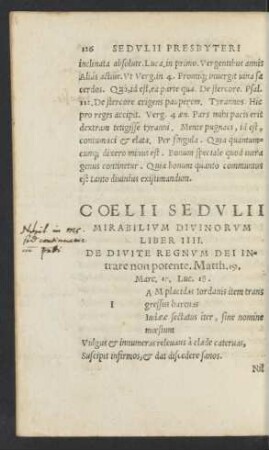 116 SEDVLII PRESBYTERI
inclinata absolute. Luca, in primo. Vergentibus annis
Aliàs actiue. Vt Verg. in 4. inuergit vina sa-
cerdos. Quà, id est, ea parte qua. De stercore. Psal.
De stercore erigens pauperem. Tyrannos. Hic
pro reges accepit. Verg. 4 æn. Pars mihi pacis erit
dextram tetigisse tyranni. Mente pugnaci, id est,
contumaci & elata. Per singula. Quia quantum-
cunque decero minus est. Bonum speciale quod vnita
genus continetur. Quia bonum quanto communius
est tanto diuinius existimandum.
COELII SEDVLII
MIRABILIVM DIVINORVM
LIBER IIII.
DE DIVITE REGNVM DEI IN-
trare non potente. Matth. 19.
Marc. 10. Luc. 18.
in ms
IAM placidas Iordanis item trans
gressus harenas
Iudeæ sectatus iter, sine nomine
morsum
Vulgus & innumeras releuans à clade cateruas,
Suscipit infirmos, & dat discedere sanos.
Nil